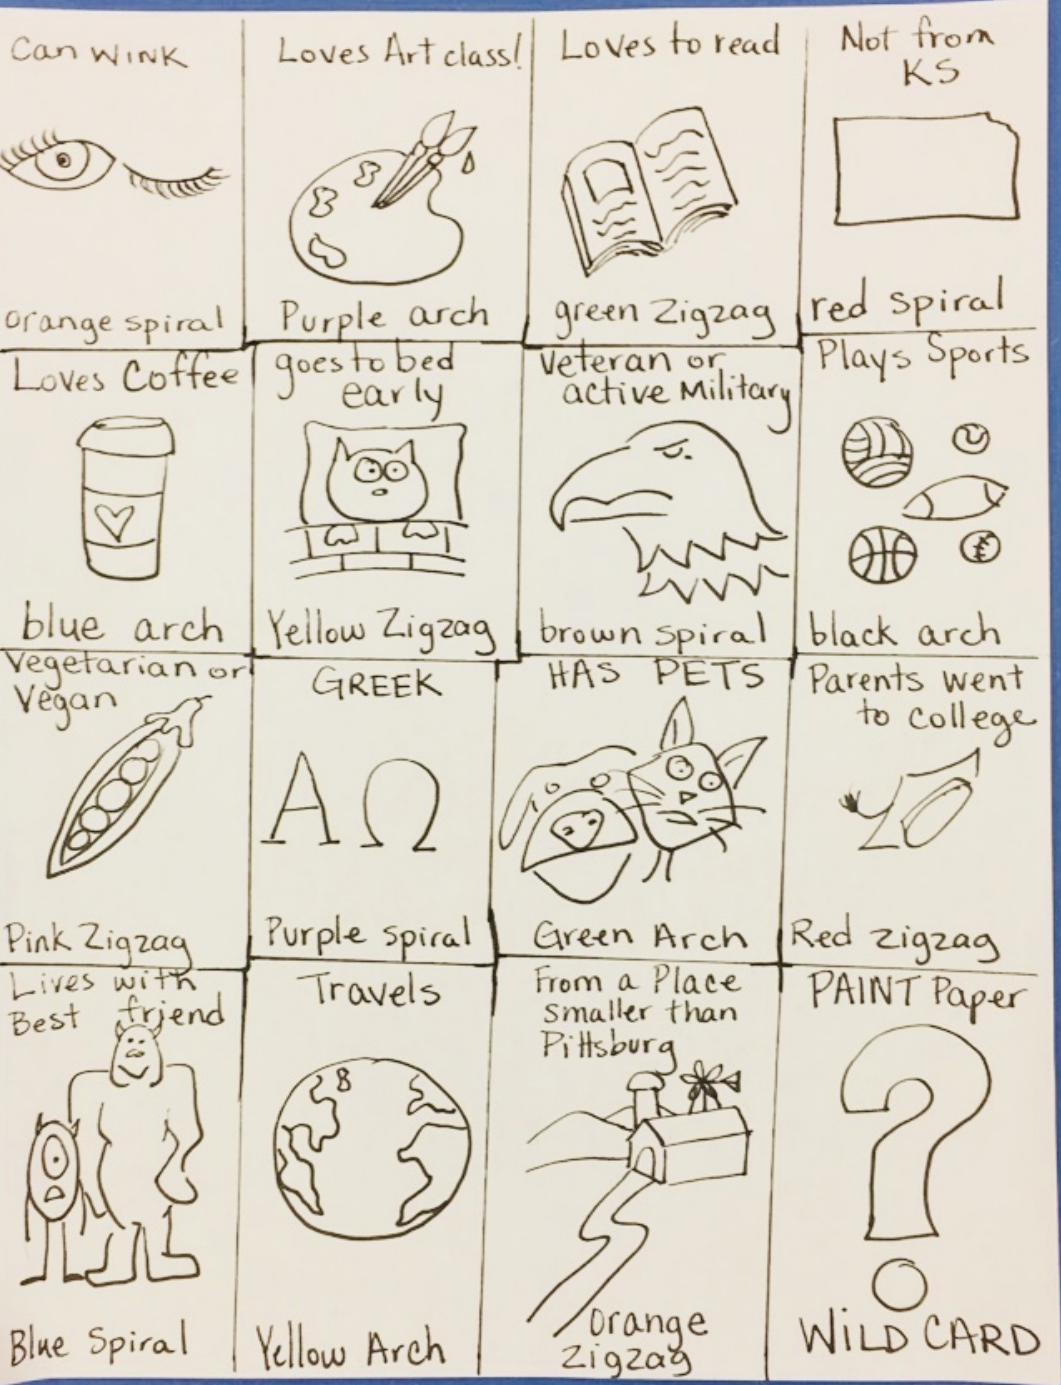 Can WINK
orange spiral
Loves Art class!
Purple arch
Loves to read
green Zigzag
Not from
KS
red spiral
Loves Coffee
blue arch
goes to bed
early
Yellow Zigzag
Veteran or
active Military
brown spiral
Plays Sports
black arch
Vegetarian or
Vegan
Pink Zigzag
GREEK
ΑΩ
Purple spiral
HAS PETS
Green Arch
Parents went
to college
Red zigzag
Lives with
Best friend
Blue Spiral
Travels
Yellow Arch
From a Place
smaller than
Pittsburg
orange
zigzag
PAINT Paper
?
WILD CARD